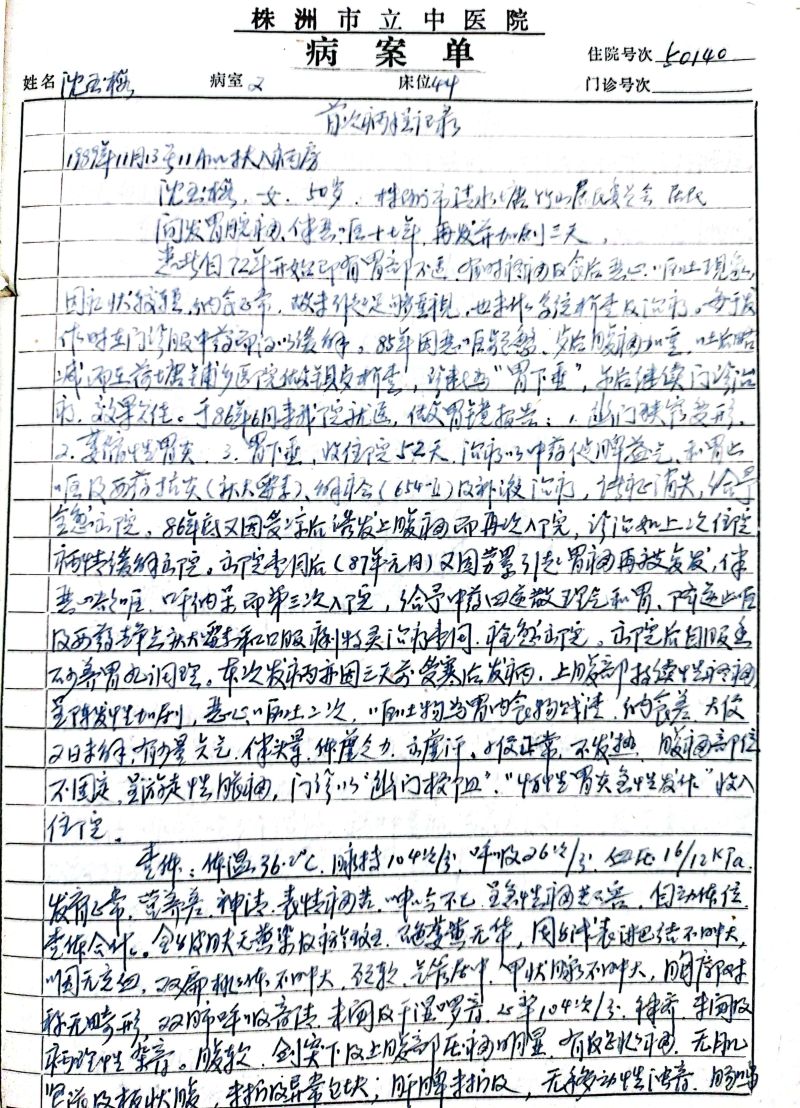 株洲市立中医院
病案单
住院号次 50140
姓名 沈玉梅 病室 2 床位 44 门诊号次
首次病程记录
1989年11月13号11Am扶入病房
沈玉梅、女、50岁、株洲市清水塘竹山居民委员会 居民
间发胃脘痛、伴恶心呕吐十七年,再发并加剧三天,
患者自72年开始即有胃部不适,有时疼痛及食后恶心呕吐现象,
因症状较轻,纳食正常,故未引起足够重视,也未作系统检查及治疗。每于发
作时在门诊服中药而得以缓解。85年因恶心呕吐频繁,多后腹痛加重,吐后略
减而在荷塘铺乡医院做钡透检查,诊断为“胃下垂”,尔后继续门诊治
疗,效果欠佳。于86年6月来我院就医,做胃镜报告:1.幽门 变形.
2.萎缩性胃炎 3.胃下垂,收住院52天,治疗以中药健脾益气,和胃止
呕及西药抗炎(庆大霉素)、解痉(654-Ⅱ)及补液治疗,诸症消失,给予
出院,86年底又因受凉后诱发上腹痛而再次入院,诊治如上次住院
病情缓解出院。出院 同后(87年元月)又因劳累引起胃痛再被复发,伴
恶心 呕,呼纳呆而第三次入院,给予中药四逆散理气和胃、降逆止呕
及西药 庆大霉素和口服痢特灵治疗 出院。出院后自服
养胃丸调理。本次发病亦因三天前受寒后发病,上腹部持续性疼痛
呈阵发性加剧,恶心呕吐二次,呕吐物为胃内食物残渣,纳食差 大便
2日未解,有少量矢气,伴头晕、体虚乏力 出虚汗。小便正常,不发热,腹痛部位
不固定,呈游走性胀痛,门诊以“幽门梗阻”、“慢性胃炎急性发作”收入
住院。
查体:体温36.2℃ 脉搏104次/分,呼吸26次/分,血压16/12KPa.
发育正常,营养差,神清,表情痛苦,呻吟不已,呈急性痛苦容,自动体位
查体合作。全身皮肤无黄染及瘀斑, 萎黄无华,周身浅表淋巴结不肿大,
咽无充血,双扁桃体不肿大,颈软,气管居中,甲状腺不肿大,胸廓对
称无畸形,双肺呼吸音清,未闻及干湿啰音,心率104次/分,律齐,未闻及
病理性杂音。腹软,剑突下及上腹部压痛明显,有反跳痛,无肌
紧张及板状腹,未扪及异常包块;肝脾未扪及,无移动性浊音,肠鸣